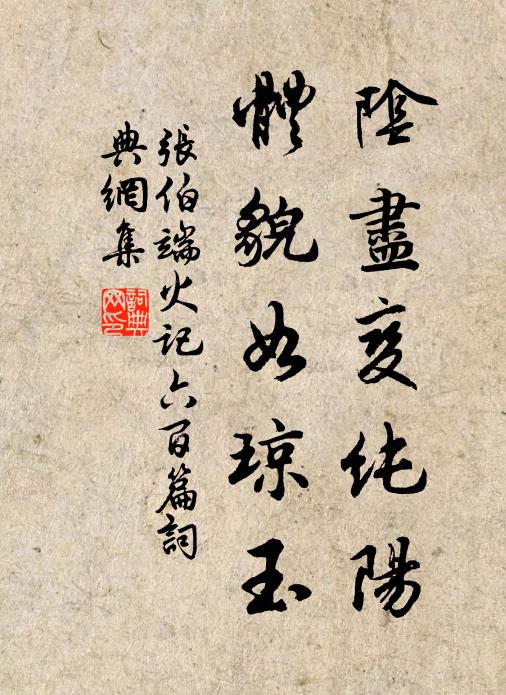 陰盡变纯陽
體貌如琼玉
張伯端火记六百篇詞
典網集
詞典
网印